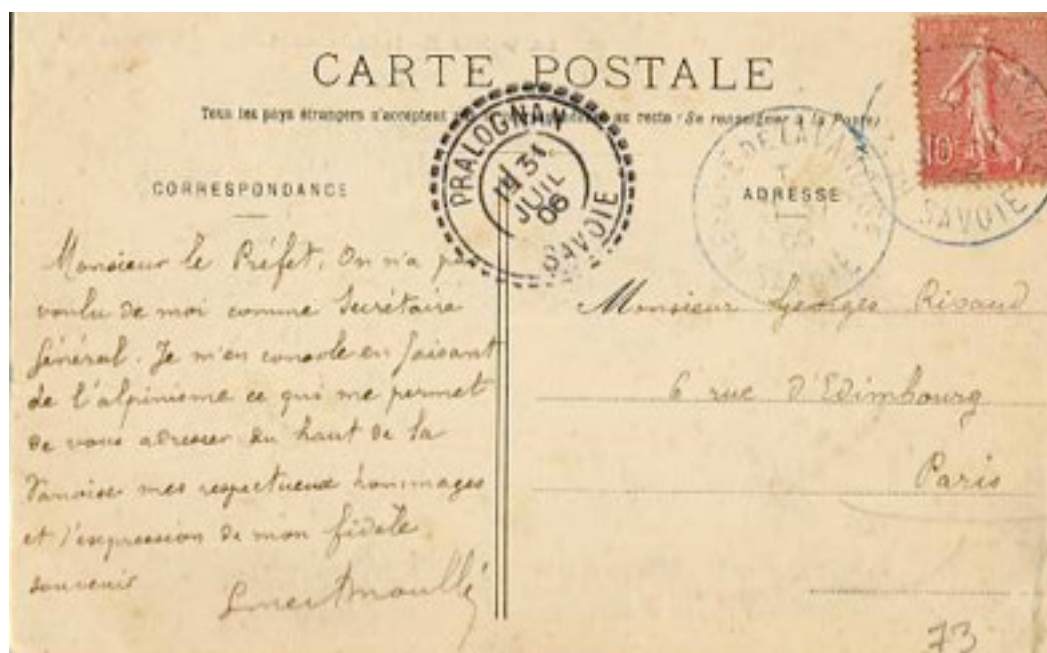 CARTE POSTALE
Tous les pays étrangers n'acceptent pas la correspondance au recto (Se renseigner à la Poste)
PRALOGNAN
31
JUIL
06
SAVOIE
DE LA
SAVOIE
10
SAVOIE
CORRESPONDANCE
Monsieur le Préfet. On n'a pas
voulu de moi comme Secrétaire
Général. Je m'en console en faisant
de l'alpinisme ce qui me permet
de vous adresser du haut de la
Vanoise mes respectueux hommages
et l'expression de mon fidèle
souvenir
ADRESSE
Monsieur Georges Rivaud
6 rue d'Edimbourg
Paris
73